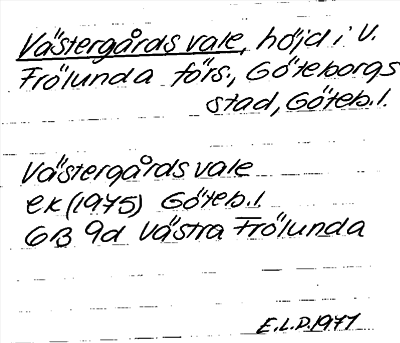 Västergårds vale, höjd i V.
Frölunda förs., Göteborgs
stad, Göteb. l.
Västergårds vale
ek (1975) Göteb. l.
6B 9d Västra Frölunda
E.L.D. 1977